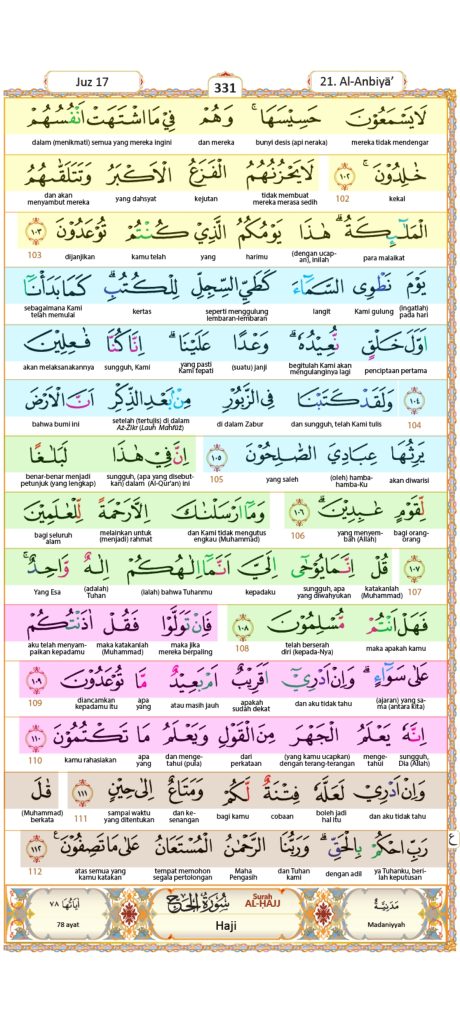 Juz 17
331
21. Al-Anbiyā’
لَا يَسْمَعُوْنَ حَسِيْسَهَا ۚ وَهُمْ فِيْ مَا اشْتَهَتْ اَنْفُسُهُمْ
mereka tidak mendengar bunyi desis (api neraka) dan mereka dalam (menikmati) semua yang mereka ingini
خٰلِدُوْنَ ۚ ١٠٢ لَا يَحْزُنُهُمُ الْفَزَعُ الْاَكْبَرُ وَتَتَلَقّٰىهُمُ
kekal 102 tidak membuat mereka merasa sedih kejutan yang dahsyat dan akan menyambut mereka
الْمَلٰۤىِٕكَةُ ۗ هٰذَا يَوْمُكُمُ الَّذِيْ كُنْتُمْ تُوْعَدُوْنَ ١٠٣
para malaikat (dengan ucapan), inilah harimu yang kamu telah dijanjikan 103
يَوْمَ نَطْوِى السَّمَاۤءَ كَطَيِّ السِّجِلِّ لِلْكُتُبِ ۗ كَمَا بَدَأْنَآ
(ingatlah) pada hari Kami gulung langit seperti menggulung lembaran-lembaran kertas sebagaimana Kami telah memulai
اَوَّلَ خَلْقٍ نُّعِيْدُهٗ ۗ وَعْدًا عَلَيْنَا ۗ اِنَّا كُنَّا فٰعِلِيْنَ
penciptaan pertama begitulah Kami akan mengulanginya lagi (suatu) janji yang pasti Kami tepati sungguh, Kami akan melaksanakannya
١٠٤ وَلَقَدْ كَتَبْنَا فِى الزَّبُوْرِ مِنْۢ بَعْدِ الذِّكْرِ اَنَّ الْاَرْضَ
104 dan sungguh, telah Kami tulis di dalam Zabur setelah (tertulis) di dalam Az-Zikr (Lauh Mahfūẓ) bahwa bumi ini
يَرِثُهَا عِبَادِيَ الصّٰلِحُوْنَ ١٠٥ اِنَّ فِيْ هٰذَا لَبَلٰغًا
akan diwarisi (oleh) hamba-hamba-Ku yang saleh 105 sungguh, (apa yang disebutkan) dalam (Al-Qur'an) ini benar-benar menjadi petunjuk (yang lengkap)
لِّقَوْمٍ عٰبِدِيْنَ ۗ ١٠٦ وَمَآ اَرْسَلْنٰكَ اِلَّا رَحْمَةً لِّلْعٰلَمِيْنَ
bagi orang-orang yang menyembah (Allah) 106 dan Kami tidak mengutus engkau (Muhammad) melainkan untuk (menjadi) rahmat bagi seluruh alam
١٠٧ قُلْ اِنَّمَا يُوْحٰٓى اِلَيَّ اَنَّمَآ اِلٰهُكُمْ اِلٰهٌ وَّاحِدٌ ۚ
107 katakanlah (Muhammad) sungguh, apa yang diwahyukan kepadaku (ialah) bahwa Tuhanmu (adalah) Tuhan Yang Esa
فَهَلْ اَنْتُمْ مُّسْلِمُوْنَ ١٠٨ فَاِنْ تَوَلَّوْا فَقُلْ اٰذَنْتُكُمْ
maka apakah kamu telah berserah diri (kepada-Nya) 108 maka jika mereka berpaling maka katakanlah (Muhammad) aku telah menyampaikan kepadamu
عَلٰى سَوَاۤءٍ ۗ وَاِنْ اَدْرِيْٓ اَقَرِيْبٌ اَمْ بَعِيْدٌ مَّا تُوْعَدُوْنَ ١٠٩
(ajaran) yang sama (antara kita) dan aku tidak tahu apakah sudah dekat atau masih jauh apa yang diancamkan kepadamu itu 109
اِنَّهٗ يَعْلَمُ الْجَهْرَ مِنَ الْقَوْلِ وَيَعْلَمُ مَا تَكْتُمُوْنَ ١١٠
sungguh, Dia (Allah) mengetahui (yang kamu ucapkan) dengan terang-terangan dari perkataan dan mengetahui (pula) apa yang kamu rahasiakan 110
وَاِنْ اَدْرِيْ لَعَلَّهٗ فِتْنَةٌ لَّكُمْ وَمَتَاعٌ اِلٰى حِيْنٍ ١١١ قٰلَ
dan aku tidak tahu boleh jadi hal itu cobaan bagi kamu dan kesenangan sampai waktu yang ditentukan 111 (Muhammad) berkata
رَبِّ احْكُمْ بِالْحَقِّ ۗ وَرَبُّنَا الرَّحْمٰنُ الْمُسْتَعَانُ عَلٰى مَا تَصِفُوْنَ ۚ ١١٢
ع
ya Tuhanku, berilah keputusan dengan adil dan Tuhan kami Maha Pengasih tempat memohon segala pertolongan atas semua yang kamu katakan 112
مَدَنِيَّة
سُوْرَةُ الْحَجّ
اٰيَاتُهَا ٧٨
Surah AL-HAJJ
78 ayat
Haji
Madaniyyah